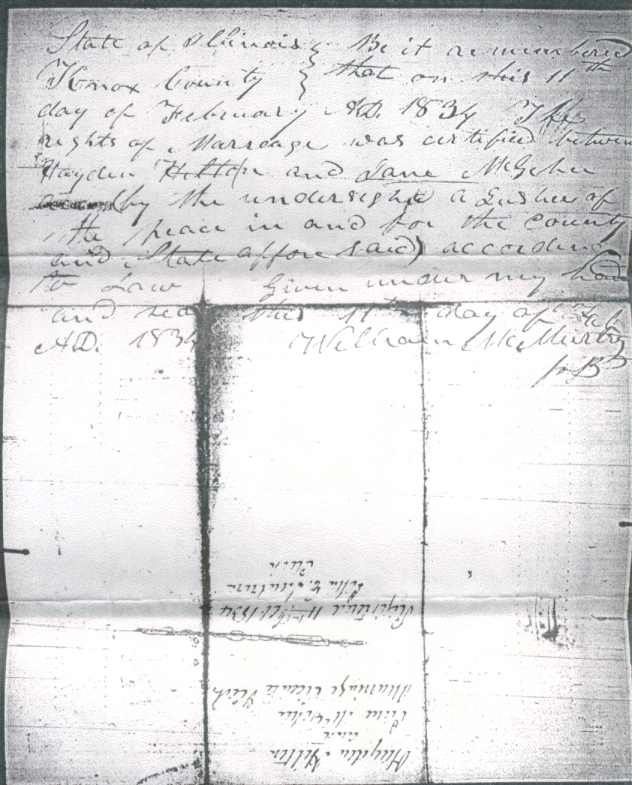 State of Illinois } Be it remembered
Knox County } that on this 11th
day of February A.D. 1834 The
rights of Marriage was certified between
Hayden Hilton and Jane McGehee
by the undersight a Justice of
the peace in and for the County
and State affore said) according
to Law Given under my hand
and seal this 11th day of Feb
A.D. 1834 William McMurtry
Hayden Hilton
and
Jane
Marriage
11th Feb 1834